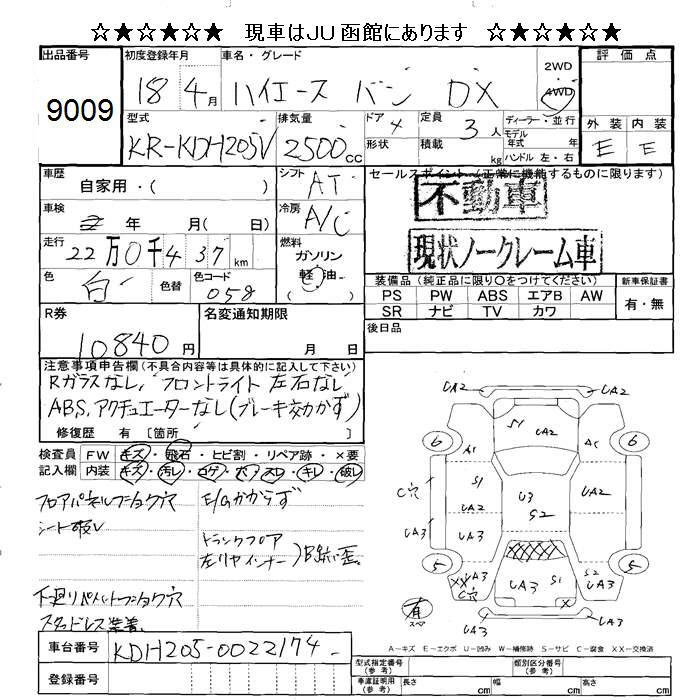 ☆★☆★☆★ 現車はJU函館にあります ☆★☆★☆★
出品番号 初度登録年月 車名・グレード 2WD 評価点
9009 18 4月 ハイエース バン DX 4WD
型式 排気量 ドア 定員 ディーラー・並行 外装 内装
KR-KDH205V 2500cc 4 3人 モデル年式 年式 E E
形状 積載 kg ハンドル 左・右
車歴 シフト セールスポイント(正常に機能するものに限ります)
自家用・( ) AT 不動車
車検 年 月(日) 冷房 A/C
走行 22万0千437km 燃料 ガソリン 軽油 ( ) 現状ノークレーム車
色 白 色替 色コード 058 装備品(純正品に限り〇をつけてください) 新車保証書
PS PW ABS エアB AW 有・無
SR ナビ TV カワ
R券 名変通知期限 後日品
10840円 月 日
注意事項申告欄(不具合内容等は具体的に記入して下さい)
Rガラスなし、フロントライト左右なし
ABS,アクチュエーターなし(ブレーキ効かず)
修復歴 有 [箇所 ]
検査員 FW キズ・飛石・ヒビ割・リペア跡・×要
記入欄 内装 キズ・汚レ・コゲ・穴・スレ・キレ・破レ
フロアパネルフショク穴 E/Gかからず
シート破レ
トランクフロア
左リヤインナー)B跡・歪
下廻りペイントフショク穴
スタッドレス装着
UA2
UA2
6 A1 S1 UA2 AC 6
C穴 S1 U3 UA2
UA2 S2
UA3 UA3 UA3
5 XX UA3 UA3 S1 S2 UA3 5
C穴 X
有 スペア UA3 UA3
A-キズ E-エクボ U-凹み W-補修跡 S-サビ C-腐食 XX-交換済
車台番号 KDH205-0022174
登録番号 型式指定番号(参考) 類別区分番号(参考)
車庫証明用(参考) 長さ cm 幅 cm 高さ cm